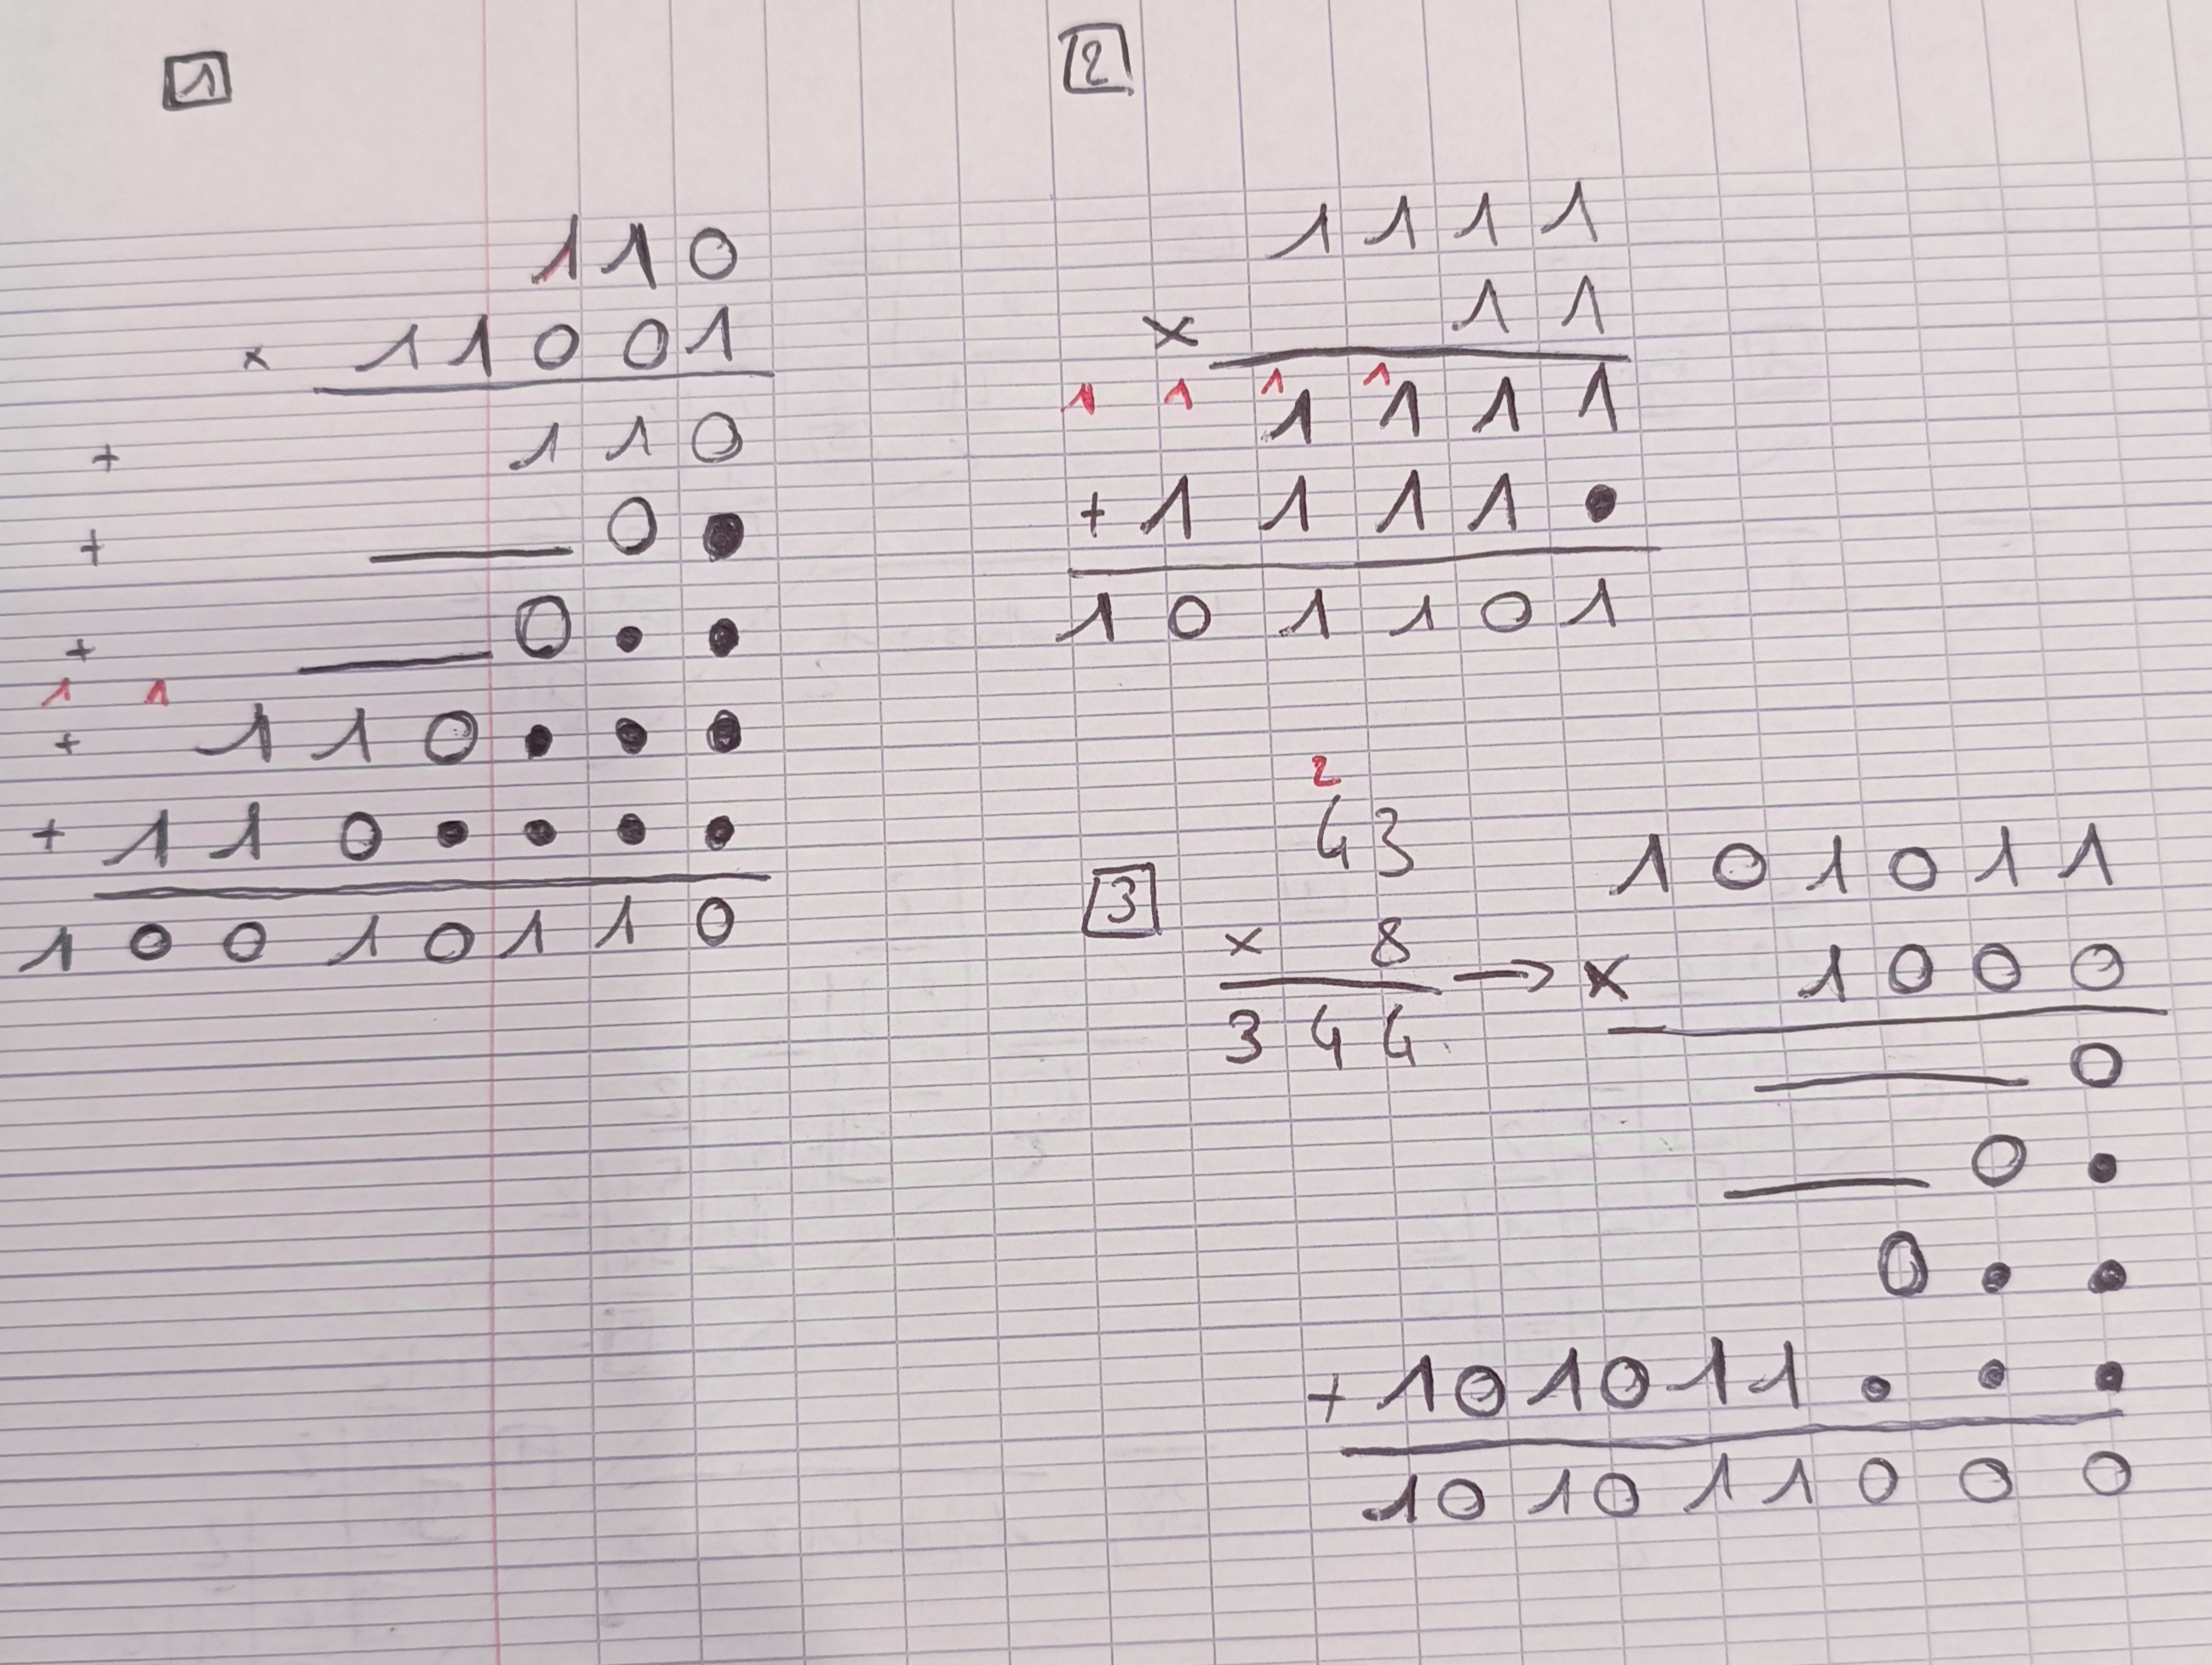 1
110
× 11001
+ 110
+ 0•
+ 0••
1 1
+ 110•••
+ 110••••
10010110
2
1111
× 11
1 1 1 1
1111
+ 1111•
101101
3
2
43
× 8
344
→
101011
× 1000
0
0•
0••
+ 101011•••
101011000